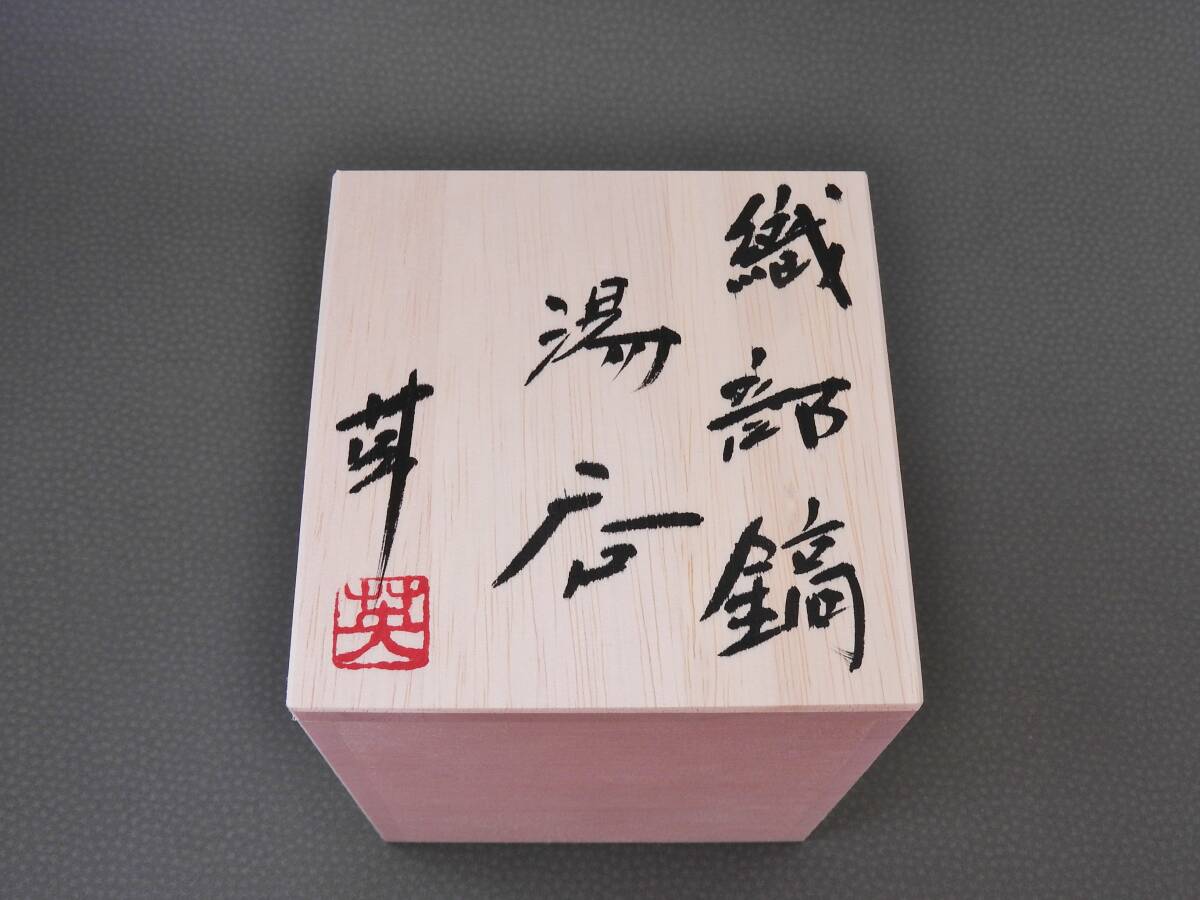 織部鎬
湯呑
英